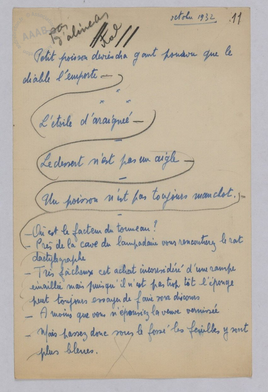 octobre 1932 11
pas
d'alinéas
Petit poisson deviendra gant pourvu que le
diable l'emporte —
" "
L'étoile d'araignée —
"
Le dessert n'est pas un aigle —
—
Un poisson n'est pas toujours manchot. —
— Où est le facteur du tonneau ?
— Près de la cave du lampadaire vous rencontrez le rat
dactylographe
— Très fâcheux est achat inconsidéré d'une rampe
émaillée mais puisqu'il n'est pas trop tôt l'éponge
peut toujours essayer de faire sans discours
— A moins que vous n'épousiez la veuve vernissée
— Mais passez donc sous le fossé les feuilles y sont
plus bleues.